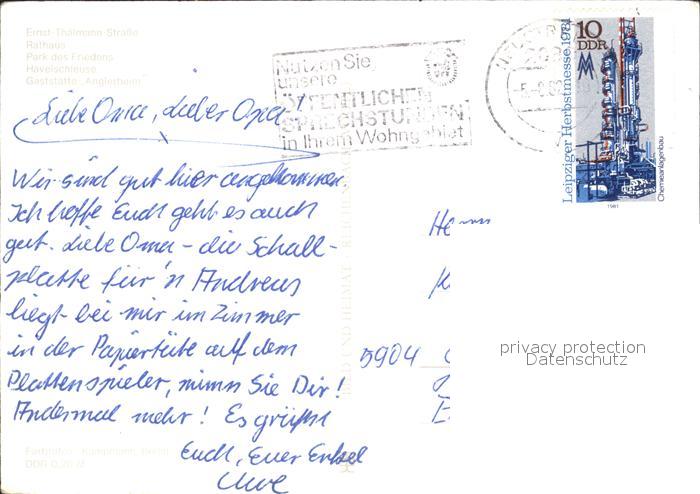 Ernst-Thälmann-Straße
Rathaus
Park des Friedens
Havelschleuse
Gaststätte „Anglerheim"
Nutzen Sie
unsere
ÖFFENTLICHEN
SPRECHSTUNDEN
in Ihrem Wohngebiet
10
DDR
Leipziger Herbstmesse 1981
Chemieanlagenbau
1981
Liebe Oma, Lieber Opa
Wir sind gut hier angekommen.
Ich hoffe Euch geht es auch
gut. Liebe Oma - die Schall-
platte für'n Andreas
liegt bei mir im Zimmer
in der Papiertüte auf dem
Plattenspieler, nimm Sie Dir!
Andermal mehr! Es grüßt
Euch, Euer Enkel
Uwe
5904
privacy protection
Datenschutz
BILD UND HEIMAT
DDR 0,20 M